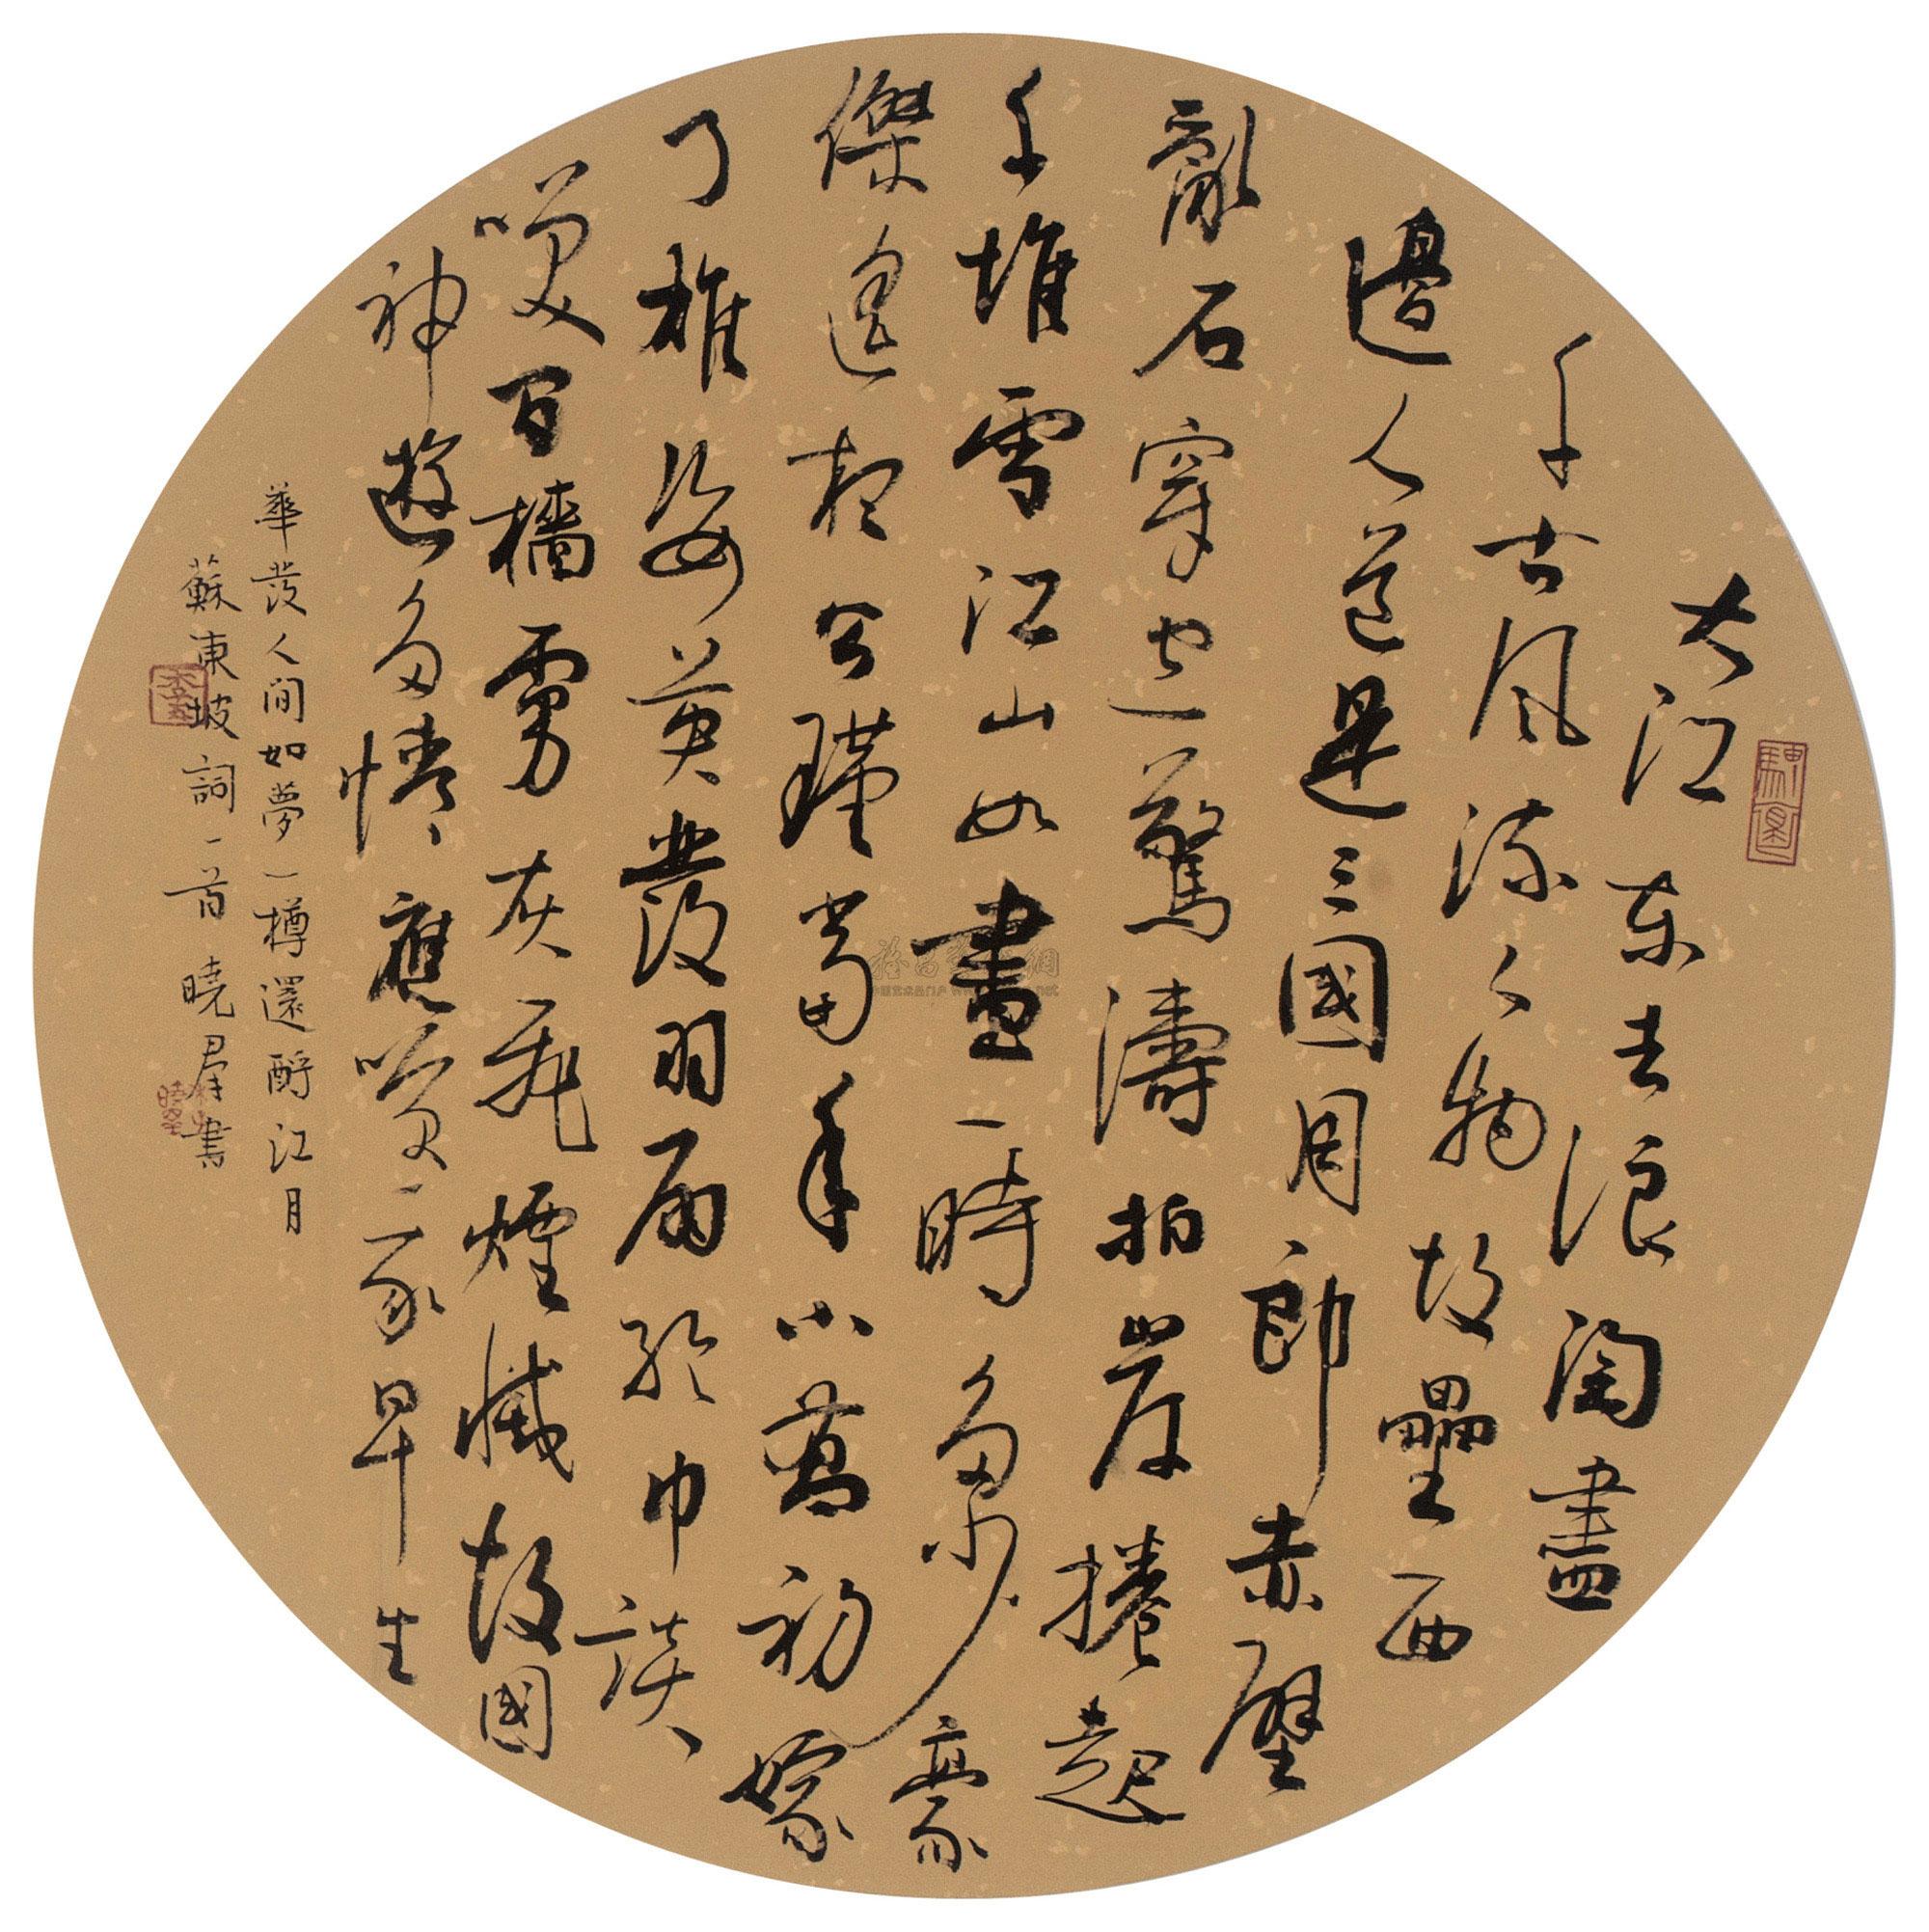 大江東去浪淘盡
千古風流人物故壘西
邊人道是三國周郎赤壁
亂石穿空驚濤拍岸捲起
千堆雪江山如畫一時多少豪
傑遙想公瑾當年小喬初嫁
了雄姿英發羽扇綸巾談
笑間檣虜灰飛煙滅故國
神遊多情應笑我早生
華發人間如夢一樽還酹江月
蘇東坡詞一首 曉羣書